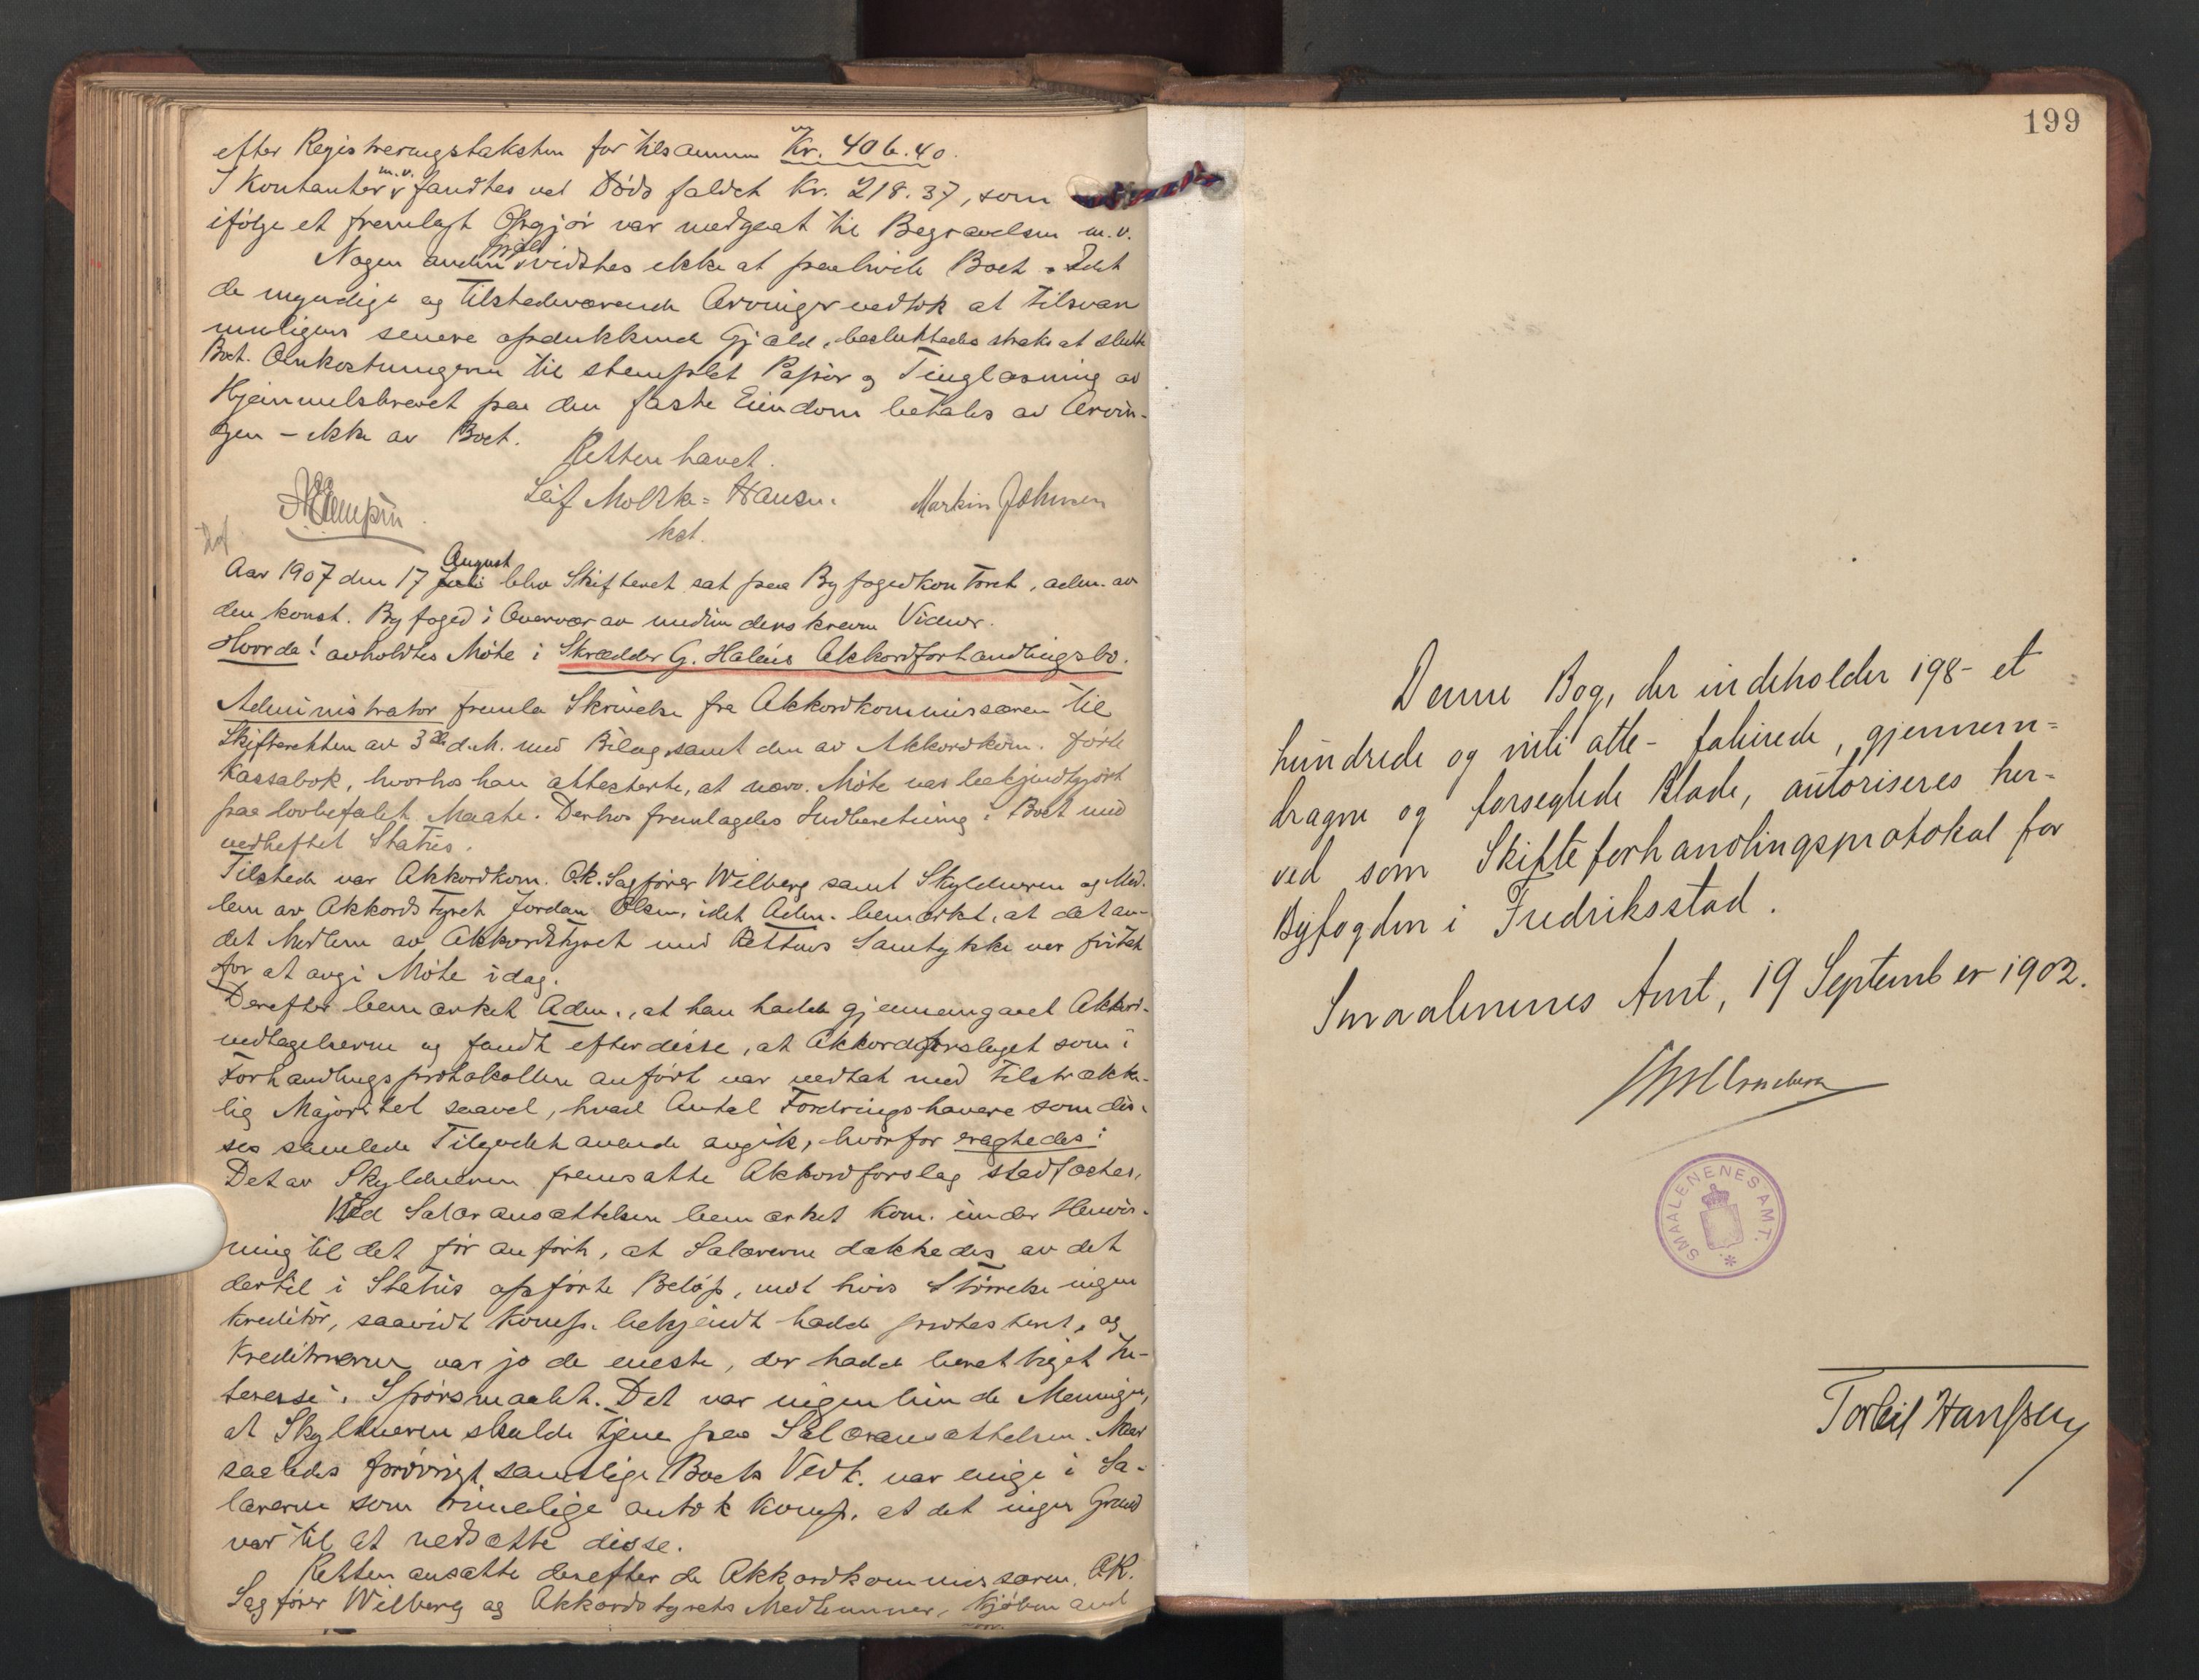 efter Registreringstaksten for tilsammen Kr. 406.40.
I Kontanter m.v. fandtes ved Dødsfaldet Kr. 218.37, som
ifølge et fremlagt Opgjør var medgaat til Begravelsen m.v.
Nogen anden Gjæld vidstes ikke at paahvile Boet. Idet
de myndige og tilstedeværende Arvinger vedtok at tilsvare
muligens senere opdukkende Gjæld, besluttedes straks at slutte
Boet. Omkostningerne til stemplet Papir og Tinglæsning av
Hjemmelsbrevet paa den faste Eiendom betales av Arvin-
gen – ikke av Boet.
Retten hævet.
Leif Moltke-Hansen
kst.
Martin Johnsen
Aar 1907 den 17 Juli August blev Skifteret sat paa Byfogedkontoret, adm. av
den konst. Byfoged i Overvær av undertegnede Vidner.
Hvorda! avholdtes Møte i Skrædder G. Haléns Akkordforhandlingsbo.
Administrator fremla Skrivelse fra Akkordkommissæren til
Skifteretten av 3die d.M. med Bilag samt den av Akkordkom. førte
Kassabok, hvorhos han attesterte, at nærv. Møte var bekjendtgjort
paa lovbefalet Maate. Derhos fremlagdes Indberetning i Boet med
vedheftet Status.
Tilstede var Akkordkom. O.R. Sagfører Wilberg samt Skyldneren og Med-
lem av Akkordstyret Jordan Olsen, idet Adm. bemærket, at det an-
det Medlem av Akkordstyret med Rettens Samtykke var fritat
for at avgi Møte idag.
Derefter bemærket Adm., at han hadde gjennemgaaet Akkord-
vedtagelserne og fandt efter disse, at Akkordforslaget som i
Forhandlingsprotokollen anført var vedtat med tilstrække-
lig Majoritet saavel, hvad Antal Fordringshavere som dis-
ses samlede Tilgodehavende angik, hvorfor eragtedes:
Det av Skyldneren fremsatte Akkordforslag stadfæstes.
Ved Salæransættelsen bemærket Kom. under Henvis-
ning til det før anførte, at Salærerne dækkedes av det
dertil i Status opførte Beløp, mot hvis Størrelse ingen
Kreditor, saavidt Komp. bekjendt hadde protestert, og
Kreditorerne var jo de eneste, der hadde berettiget In-
teresse i Spørsmaalet. Det var ingenlunde Meningen,
at Skyldneren skulde tjene paa Salæransættelsen. Naar
saaledes forøvrigt samtlige Boets Vedk. var enige i Sa-
lærerne som rimelige antok Komp. at det ingen Grund
var til at nedsætte disse.
Retten ansatte derefter de Akkordkommissæren, O.R.
Sagfører Wilberg og Akkordstyrets Medlemmer, Kjøbmand
199
Denne Bog, der indeholder 198 - et
hundrede og nitti otte - folierede, gjennem-
dragne og forseglede Blade, autoriseres her-
ved som Skifteforhandlingsprotokol for
Byfogden i Fredriksstad.
Smaalenenes Amt, 19 September 1902.
SMAALENENES AMT.
Torleif Hanssen